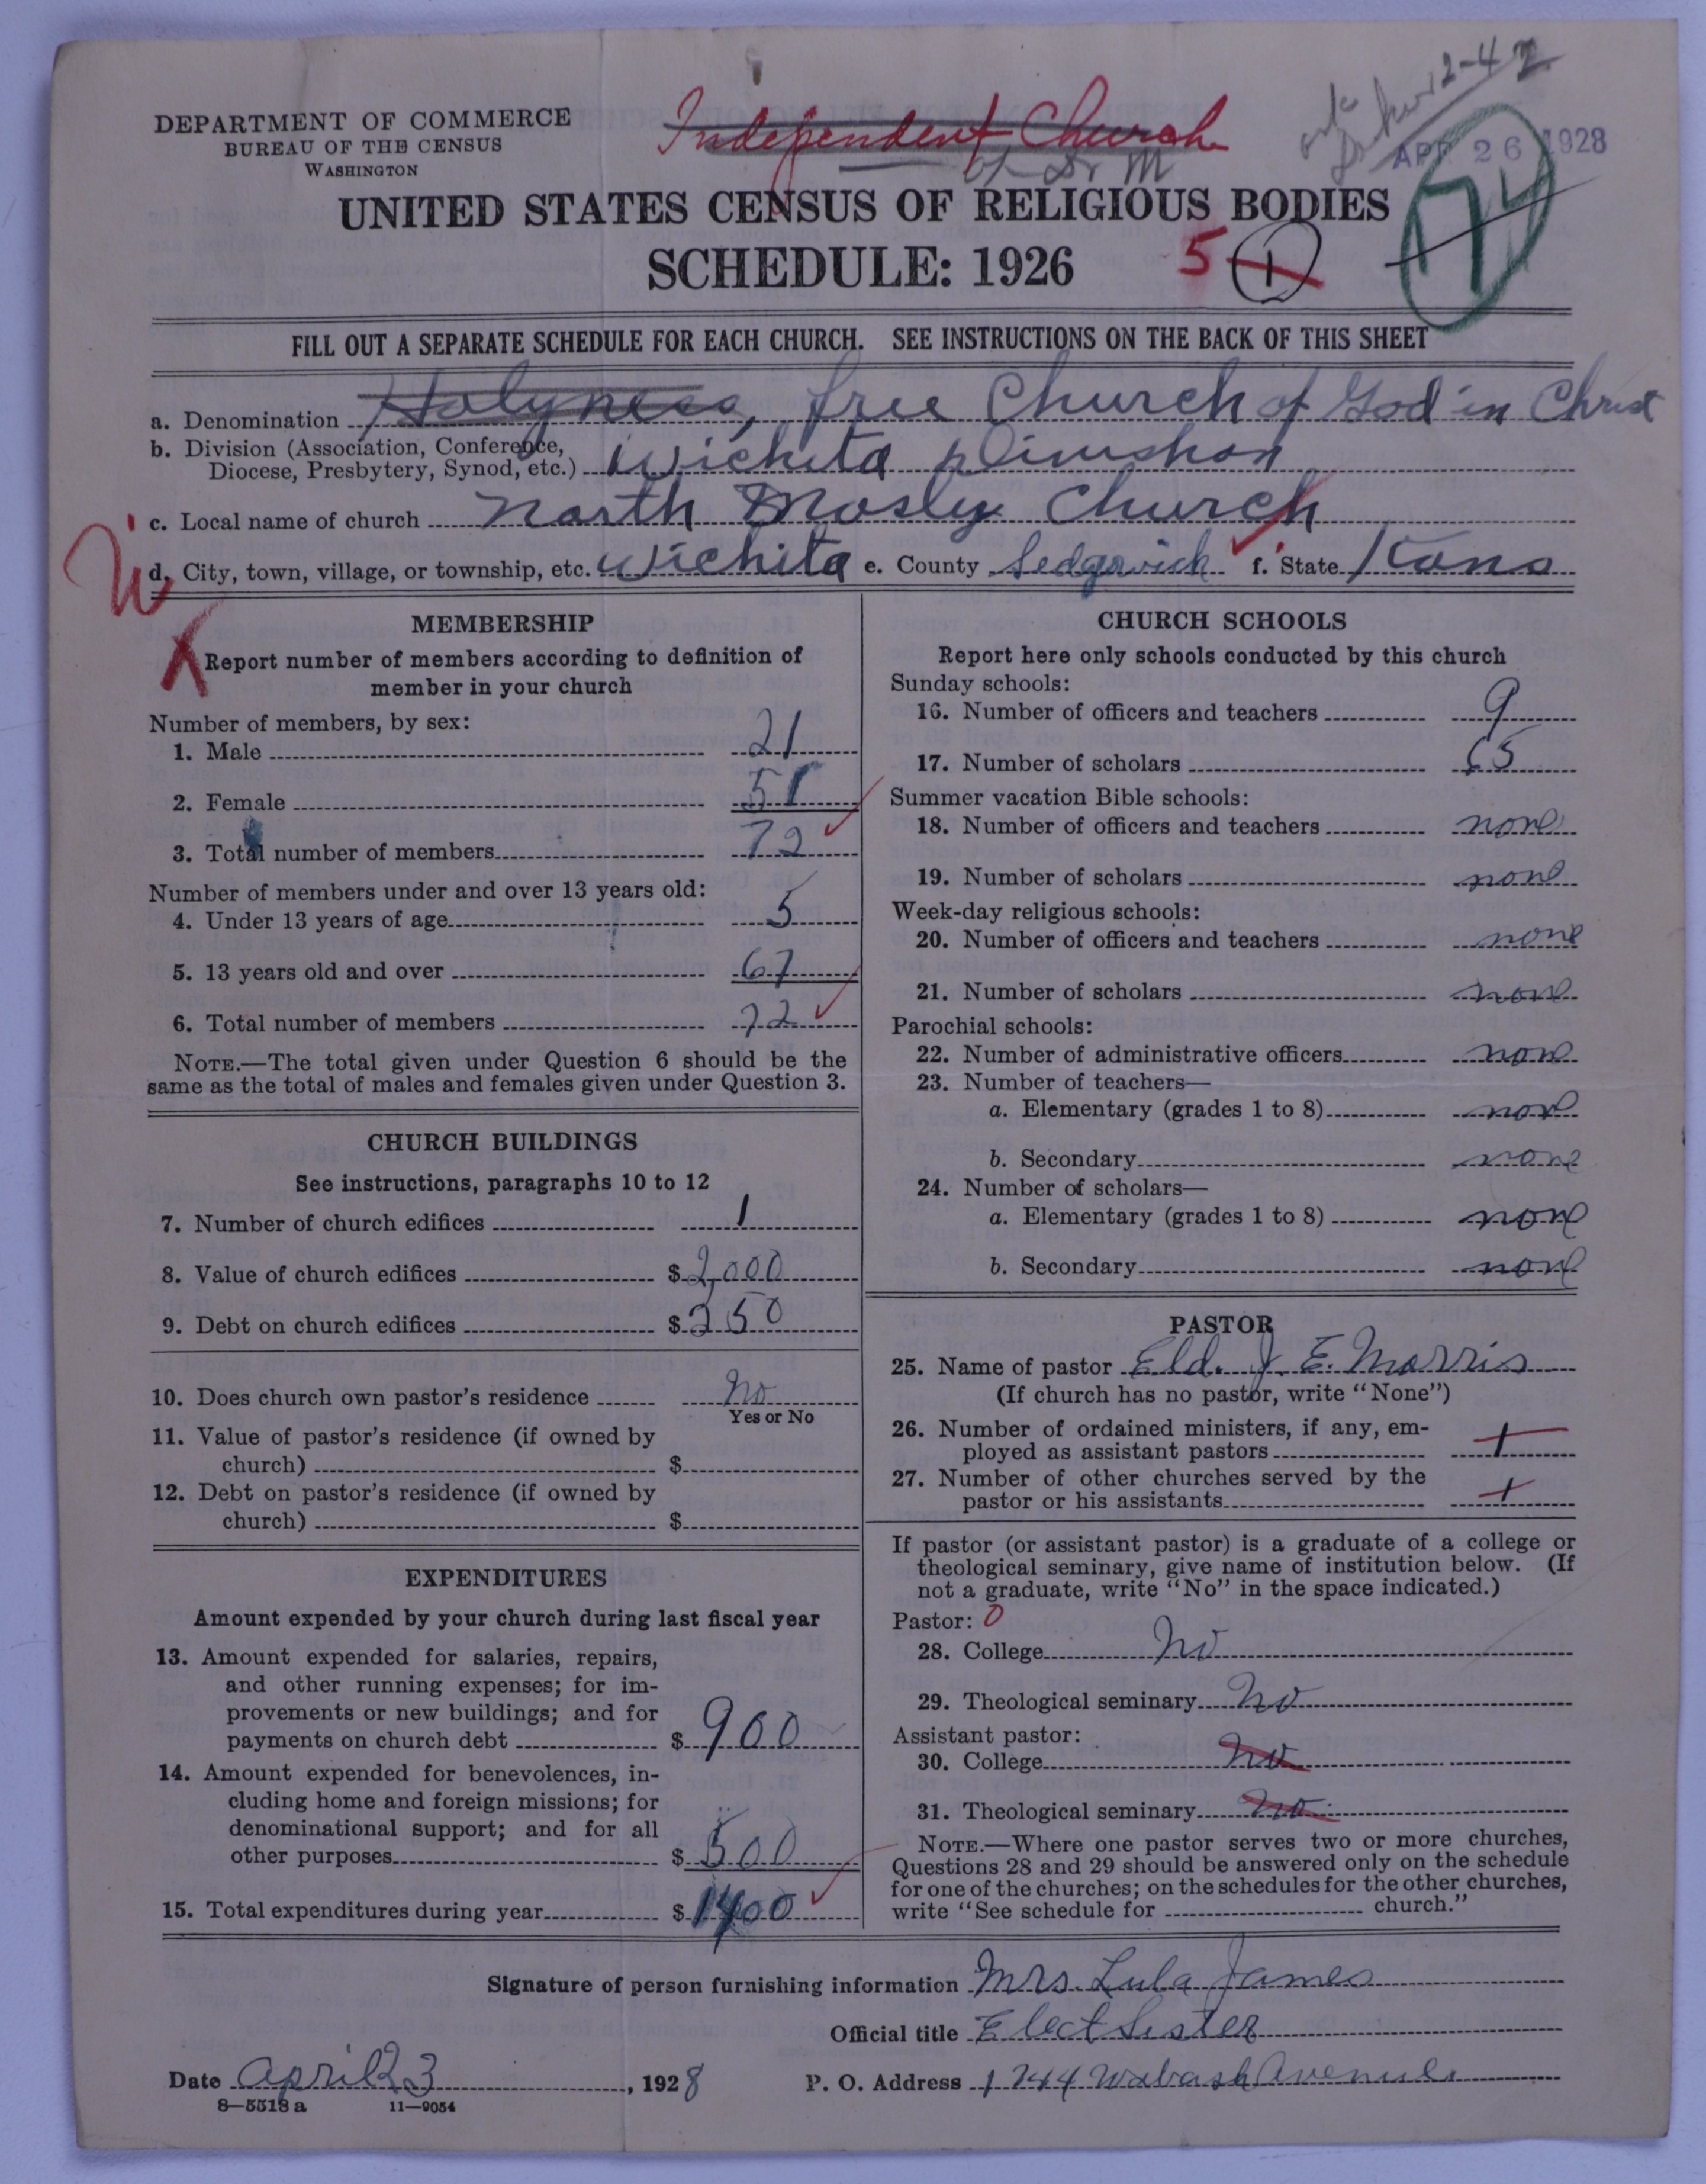 DEPARTMENT OF COMMERCE
BUREAU OF THE CENSUS
WASHINGTON
Independent Church
2-42
APR 26 1928
UNITED STATES CENSUS OF RELIGIOUS BODIES
SCHEDULE: 1926
5 1
74
FILL OUT A SEPARATE SCHEDULE FOR EACH CHURCH. SEE INSTRUCTIONS ON THE BACK OF THIS SHEET
a. Denomination Holyness, free Church of God in Christ
b. Division (Association, Conference,
Diocese, Presbytery, Synod, etc.) Wichita
c. Local name of church North Mosly Church
d. City, town, village, or township, etc. Wichita e. County Sedgwick f. State Kans
MEMBERSHIP
Report number of members according to definition of
member in your church
Number of members, by sex:
1. Male 21
2. Female 51
3. Total number of members 72
Number of members under and over 13 years old:
4. Under 13 years of age 5
5. 13 years old and over 67
6. Total number of members 72
NOTE.—The total given under Question 6 should be the
same as the total of males and females given under Question 3.
CHURCH BUILDINGS
See instructions, paragraphs 10 to 12
7. Number of church edifices 1
8. Value of church edifices $2,000
9. Debt on church edifices $250
10. Does church own pastor's residence No
Yes or No
11. Value of pastor's residence (if owned by
church) $
12. Debt on pastor's residence (if owned by
church) $
EXPENDITURES
Amount expended by your church during last fiscal year
13. Amount expended for salaries, repairs,
and other running expenses; for im-
provements or new buildings; and for
payments on church debt $900
14. Amount expended for benevolences, in-
cluding home and foreign missions; for
denominational support; and for all
other purposes $500
15. Total expenditures during year $1400
CHURCH SCHOOLS
Report here only schools conducted by this church
Sunday schools:
16. Number of officers and teachers 9
17. Number of scholars 65
Summer vacation Bible schools:
18. Number of officers and teachers none
19. Number of scholars none
Week-day religious schools:
20. Number of officers and teachers none
21. Number of scholars none
Parochial schools:
22. Number of administrative officers none
23. Number of teachers—
a. Elementary (grades 1 to 8) none
b. Secondary none
24. Number of scholars—
a. Elementary (grades 1 to 8) none
b. Secondary none
PASTOR
25. Name of pastor Eld. J. E. Morris
(If church has no pastor, write "None")
26. Number of ordained ministers, if any, em-
ployed as assistant pastors 1
27. Number of other churches served by the
pastor or his assistants 1
If pastor (or assistant pastor) is a graduate of a college or
theological seminary, give name of institution below. (If
not a graduate, write "No" in the space indicated.)
Pastor: 0
28. College No
29. Theological seminary No
Assistant pastor:
30. College no
31. Theological seminary no
NOTE.—Where one pastor serves two or more churches,
Questions 28 and 29 should be answered only on the schedule
for one of the churches; on the schedules for the other churches,
write "See schedule for church."
Signature of person furnishing information Mrs Lula James
Official title Elect Sister
Date April 23, 1928 P. O. Address 1744 Wabash Avenue
8—5518 a 11—9054